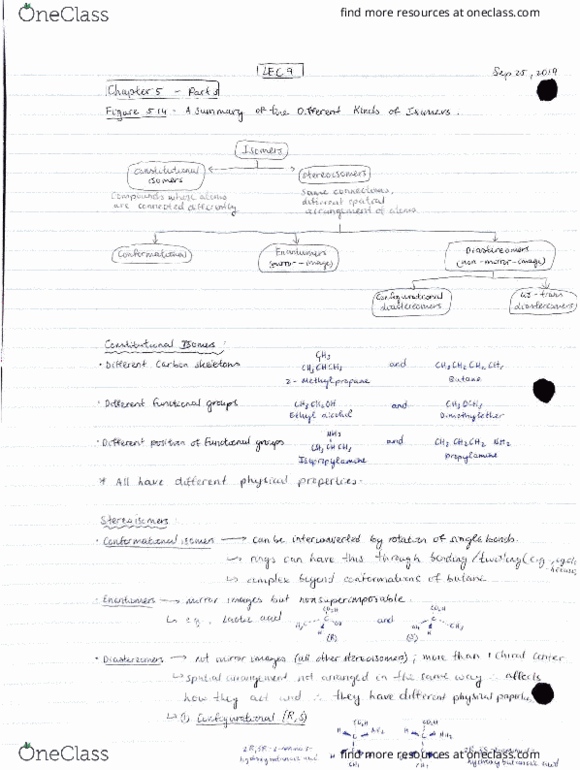 OneClass
find more resources at oneclass.com
LEC 9
Sep 25, 2019
Chapter 5 - Part 3
Figure 5.14 - A Summary of the Different Kinds of Isomers.
Isomers
constitutional isomers
stereoisomers
Compounds whose atoms are connected differently
Same connections, different spatial arrangement of atoms
Conformational
Enantiomers (mirror-image)
Diastereomers (non-mirror-image)
Configurational diastereomers
cis-trans diastereomers
Constitutional Isomers:
· Different Carbon skeletons
CH3
CH3CHCH3 and CH3CH2CH2CH3
2-Methylpropane Butane
· Different functional groups CH3CH2OH and CH3OCH3
Ethyl alcohol Dimethylether
· Different position of Functional groups
NH2
CH3CHCH3 and CH3CH2CH2NH2
Isopropylamine Propylamine
* All have different physical properties.
Stereoisomers:
· Conformational isomers → can be interconverted by rotation of single bonds.
↳ rings can have this through bending/twisting (e.g.,
↳ complex beyond conformations of butane
· Enantiomers → mirror images but nonsuperimposable.
↳ e.g., lactic acid CO2H and CO2H
H3C C H OH H OH C CH3
(R) (S)
· Diastereomers → not mirror images (all other stereoisomers); more than 1 chiral center
↳ spatial arrangement not arranged in the same way ∴ affects
how they act and ∴ they have different physical
↳ ① Configurational (R,S)
CO2H CO2H
H C NH2 H C NH2
OneClass
find more resources at oneclass.com